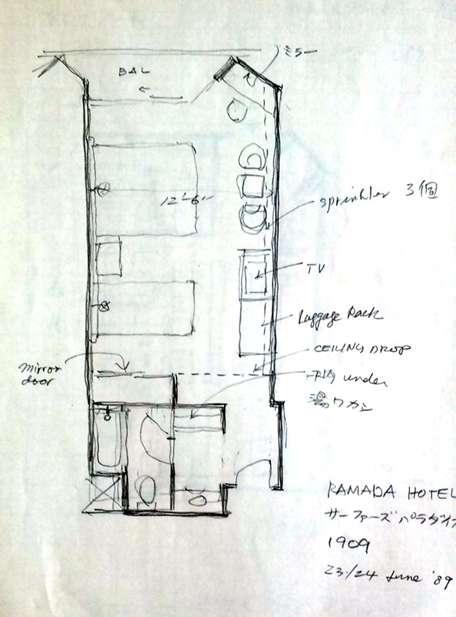 ミラー
BAL
12'-6"
sprinkler 3個
TV
Luggage Rack
CEILING DROP
mirror
door
under
湯ワカシ
RAMADA HOTEL
サーファーズパラダイス
1909
23/24 June '89